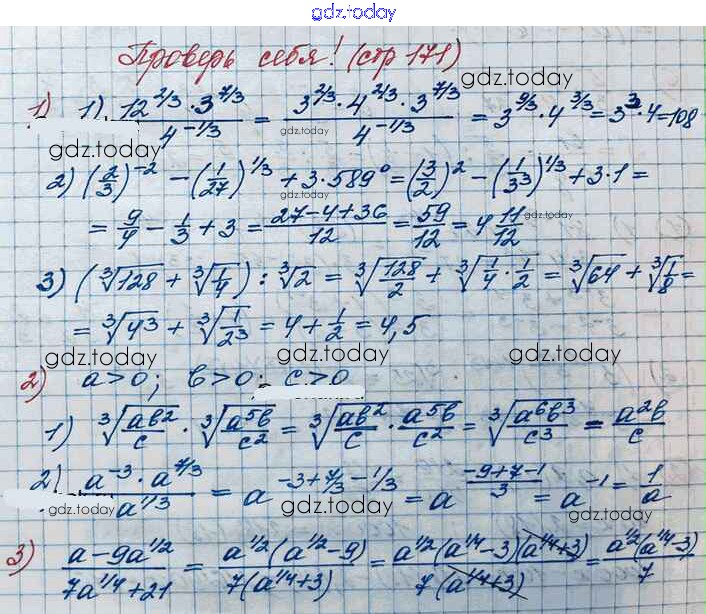 gdz.today
Проверь себя! (стр 171)
gdz.today
1) 1). 12^(2/3) · 3^(7/3) / 4^(-1/3) = 3^(2/3) · 4^(2/3) · 3^(7/3) / 4^(-1/3) = 3^(9/3) · 4^(3/3) = 3^3 · 4 = 108
gdz.today gdz.today gdz.today
2) (2/3)^(-2) - (1/27)^(1/3) + 3 · 589^0 = (3/2)^2 - (1/3^3)^(1/3) + 3 · 1 =
= 9/4 - 1/3 + 3 = (27-4+36)/12 = 59/12 = 4 11/12
gdz.today
3) (∛128 + ∛(1/4)) : ∛2 = ∛(128/2) + ∛(1/4 · 1/2) = ∛64 + ∛(1/8) =
= ∛(4^3) + ∛(1/2^3) = 4 + 1/2 = 4,5
gdz.today gdz.today gdz.today
2) a>0; b>0; c>0
1) ∛(ab^2/c) · ∛(a^5b/c^2) = ∛(ab^2/c · a^5b/c^2) = ∛(a^6b^3/c^3) = a^2b/c
2) a^(-3) · a^(7/3) / a^(1/3) = a^(-3+7/3-1/3) = a^((-9+7-1)/3) = a^(-1) = 1/a
gdz.today gdz.today gdz.today
3) (a-9a^(1/2)) / (7a^(1/4)+21) = a^(1/2)(a^(1/2)-9) / 7(a^(1/4)+3) = a^(1/2)(a^(1/4)-3)(a^(1/4)+3) / 7(a^(1/4)+3) = a^(1/2)(a^(1/4)-3) / 7